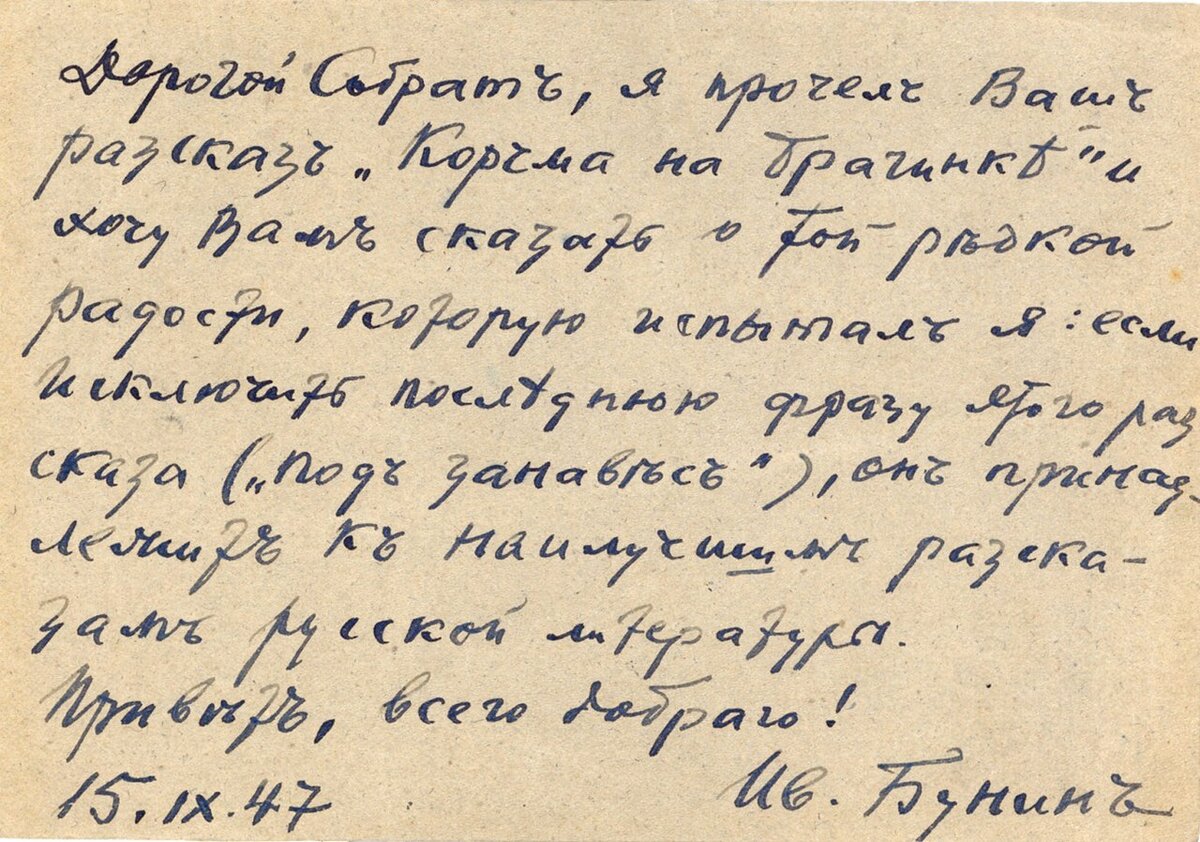 Дорогой Собратъ, я прочелъ Вашъ
разсказъ „Корчма на Брагинкѣ" и
хочу Вамъ сказать о той рѣдкой
радости, которую испыталъ я: если
исключить послѣднюю фразу этого раз
сказа („подъ занавѣсъ"), онъ принад-
лежитъ къ наилучшимъ разска-
замъ русской литературы.
Привѣтъ, всего добраго!
15.IX.47 Ив. Бунинъ